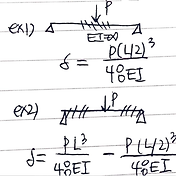 ex1)
P
EI=∞
δ = P(L/2)³ / 48EI
ex2)
P
δ = PL³ / 48EI - P(L/2)³ / 48EI